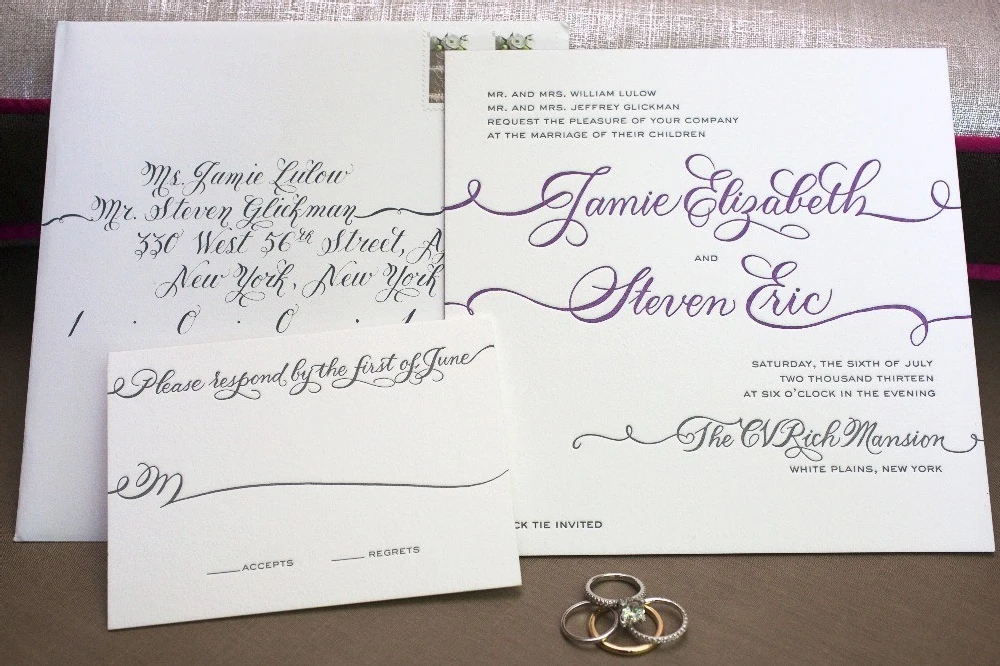 Ms. Jamie Lulow
Mr. Steven Glickman
330 West 56th Street,
New York, New York
1 · 0 · 0 · 1
MR. AND MRS. WILLIAM LULOW
MR. AND MRS. JEFFREY GLICKMAN
REQUEST THE PLEASURE OF YOUR COMPANY
AT THE MARRIAGE OF THEIR CHILDREN
Jamie Elizabeth
AND
Steven Eric
SATURDAY, THE SIXTH OF JULY
TWO THOUSAND THIRTEEN
AT SIX O'CLOCK IN THE EVENING
The CV Rich Mansion
WHITE PLAINS, NEW YORK
CK TIE INVITED
Please respond by the first of June
M
ACCEPTS
REGRETS